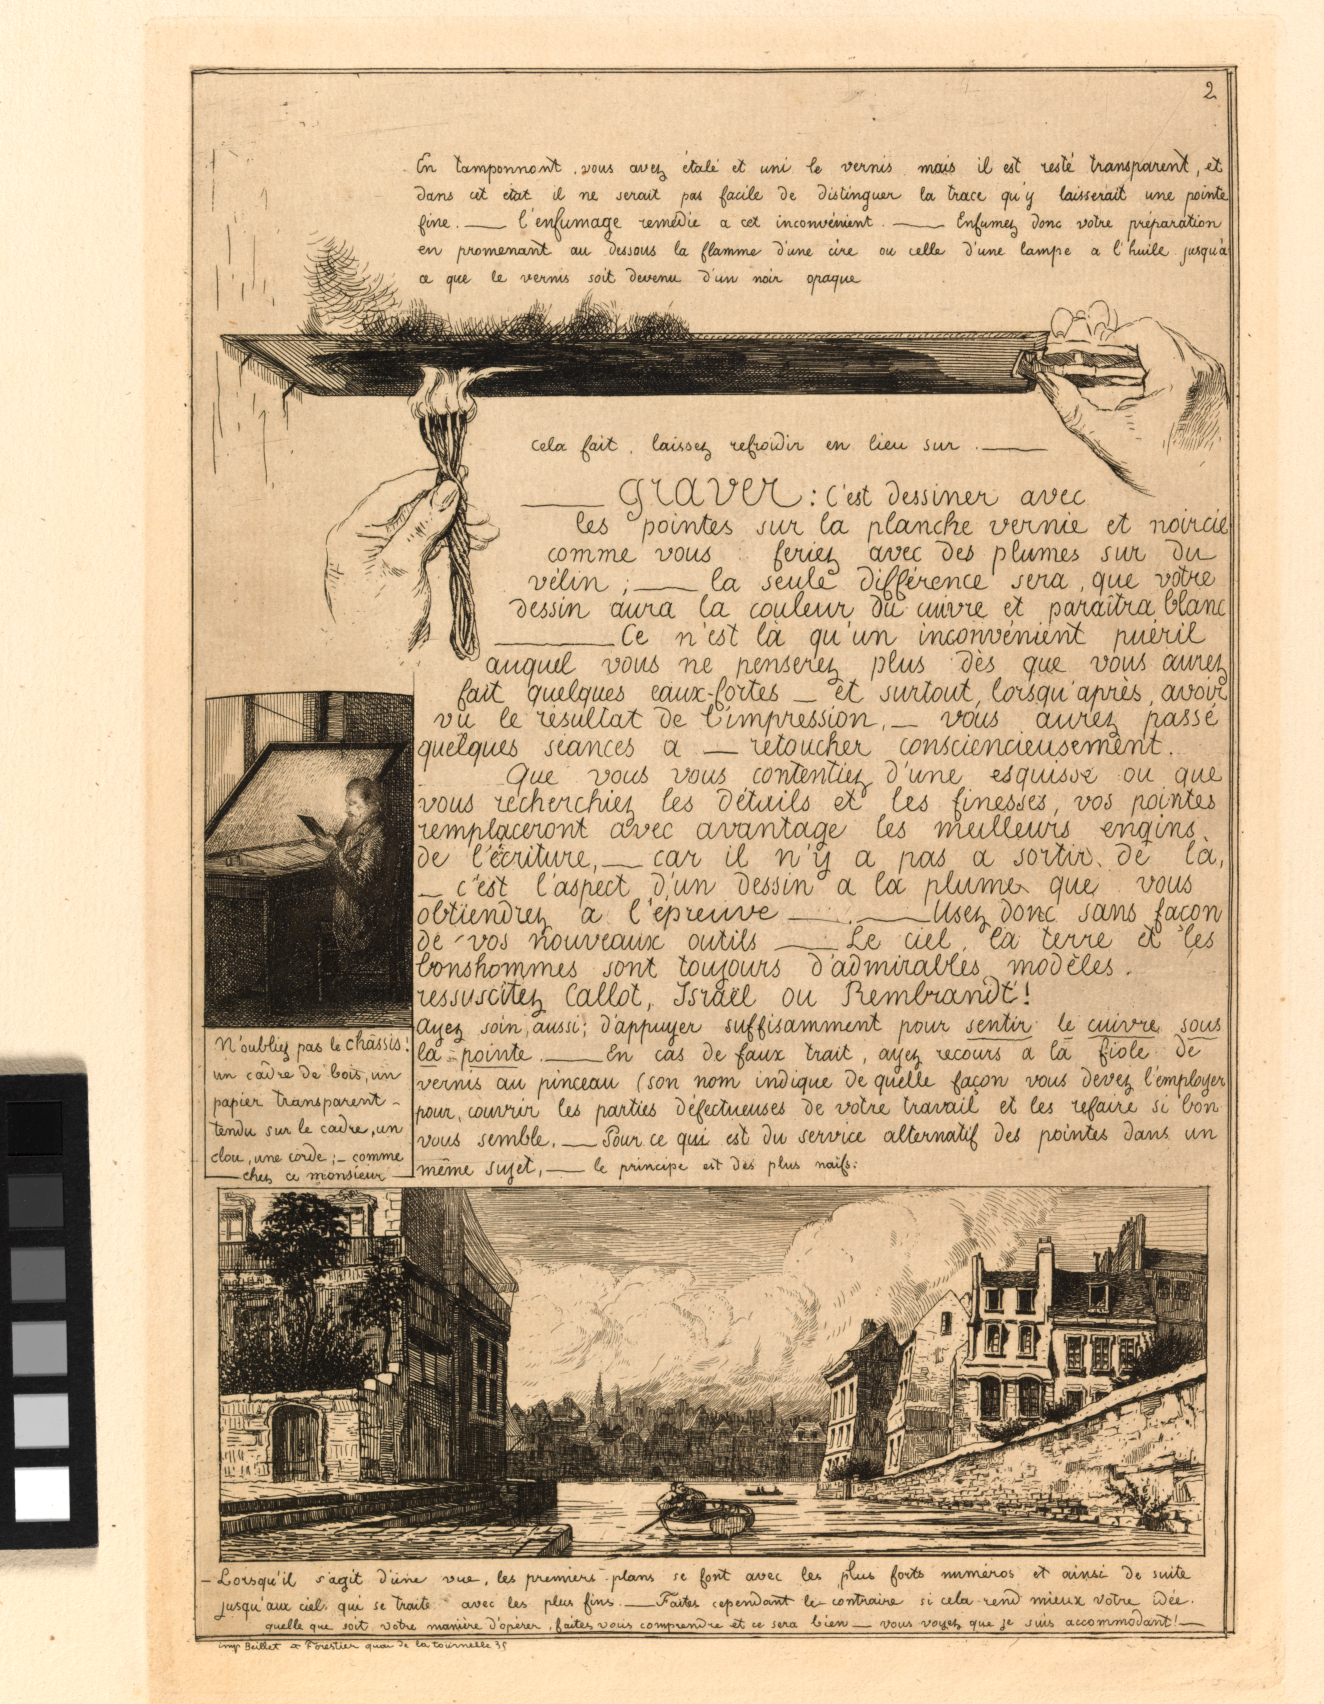 2
En tamponnont, vous avez étalé et uni le vernis mais il est resté transparent, et
dans cet état il ne serait pas facile de distinguer la trace qu'y laisserait une pointe
fine. — l'enfumage remédie a cet inconvénient. — Enfumez donc votre préparation
en promenant au dessous la flamme d'une cire ou celle d'une lampe a l'huile jusqu'à
ce que le vernis soit devenu d'un noir opaque
cela fait, laissez refroidir en lieu sur. —
— graver : C'est dessiner avec
les pointes sur la planche vernie et noircie
comme vous feriez avec des plumes sur du
vélin ; — la seule différence sera, que votre
dessin aura la couleur du cuivre et paraîtra blanc
— Ce n'est là qu'un inconvénient puéril
auquel vous ne penserez plus dès que vous aurez
fait quelques eaux-fortes — et surtout, lorsqu'après, avoir
vu le résultat de l'impression, — vous aurez passé
quelques séances a — retoucher consciencieusement.
Que vous vous contentiez d'une esquisse ou que
vous recherchiez les détails et les finesses, vos pointes
remplaceront avec avantage les meilleurs engins
de l'écriture, — car il n'y a pas a sortir de là,
— c'est l'aspect d'un dessin a la plume que vous
obtiendrez a l'épreuve — . — Usez donc sans façon
de vos nouveaux outils — Le ciel, la terre et les
bonshommes sont toujours d'admirables modèles.
ressuscitez Callot, Israël ou Rembrandt !
Ayez soin, aussi ; d'appuyer suffisamment pour sentir le cuivre sous
la pointe. — En cas de faux trait, ayez recours a la fiole de
vernis au pinceau (son nom indique de quelle façon vous devez l'employer
pour, couvrir les parties défectueuses de votre travail et les refaire si bon
vous semble. — Pour ce qui est du service alternatif des pointes dans un
même sujet, — le principe est des plus naïfs :
N'oubliez pas le châssis !
un cadre de bois, un
papier transparent -
tendu sur le cadre, un
clou, une corde ; - comme
— chez ce monsieur —
- Lorsqu'il s'agit d'une vue, les premiers plans se font avec les plus forts numéros et ainsi de suite
jusqu'aux ciel qui se traite avec les plus fins. — Faites cependant le contraire si cela rend mieux votre idée.
quelle que soit votre manière d'opérer, faites vous comprendre et ce sera bien — vous voyez que je suis accommodant ! —
imp Beillet et Forestier quai de la tournelle 35